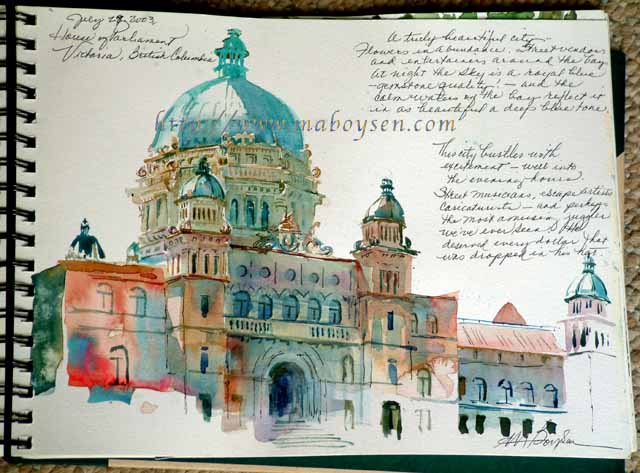 July 28, 2003
House of Parliament
Victoria, British Columbia
A truly beautiful city
Flowers in abundance, street vendors
and entertainers around the bay.
At night the sky is a royal blue
- gemstone quality! - and the
calm waters of the bay reflect it
in as beautiful a deep blue tone.
http://www.maboysen.com
This city bustles with
excitement - well into
the evening hours.
Street musicians, escape artists
caricaturists - and perhaps
the most amusing juggler
we've ever seen. He
deserved every dollar that
was dropped in his hat.